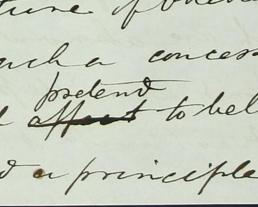 ture of
such a concess
pretend
affect to bel
d a principle